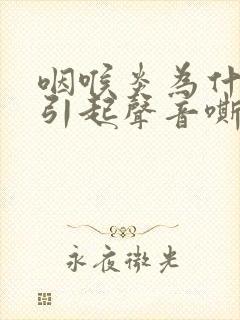 咽喉炎為什
引起聲音嘶
永夜微光